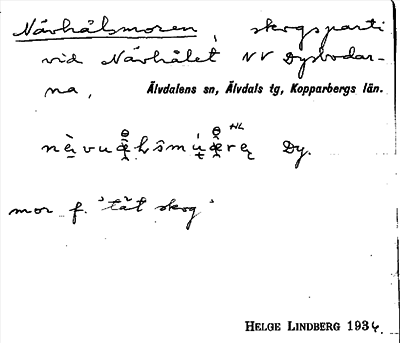 Nävhålsmoren, skogsparti
vid Nävhålet NV Dysbodar-
na, Älvdalens sn, Älvdals tg, Kopparbergs län.
Dy.
mor f. 'tät skog'
HELGE LINDBERG 1934.